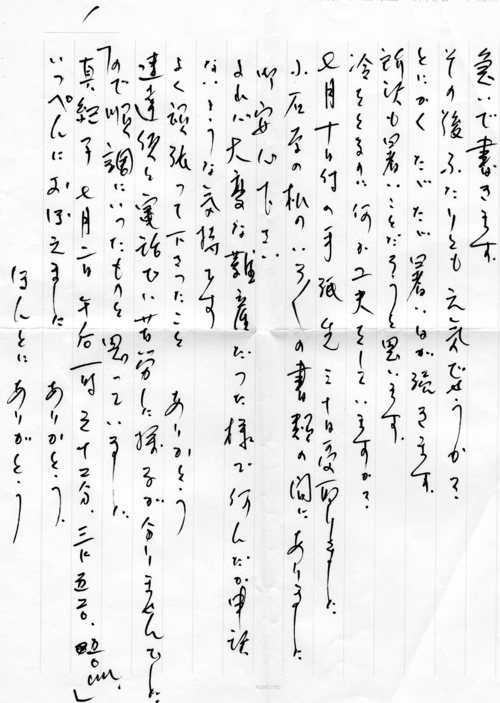 急いで書きます
その後ふたりとも元気でせうか?
とにかく たいたい 暑い日が続きます。
暑いことだろうと思います。
冷をとるのに何か工夫をしていますか?
七月十日付の手紙先三十日受取りました
小石原の私のいろ〱の書類の間にありました
御安心下さい
よれば大変な難産だった様で何んだか申訳
ないような気持です
よく頑張って下さったこと ありがとう
速達便と電話でい苦労した様子が分りませんでした
ので順調にいったものと思っていました。
「真紀子 七月二日午后一時三十二分、三二五〇g、五〇cm。」
いっぺんにおぼえました ありがとう。
ほんとに ありがとう
KOKUYO